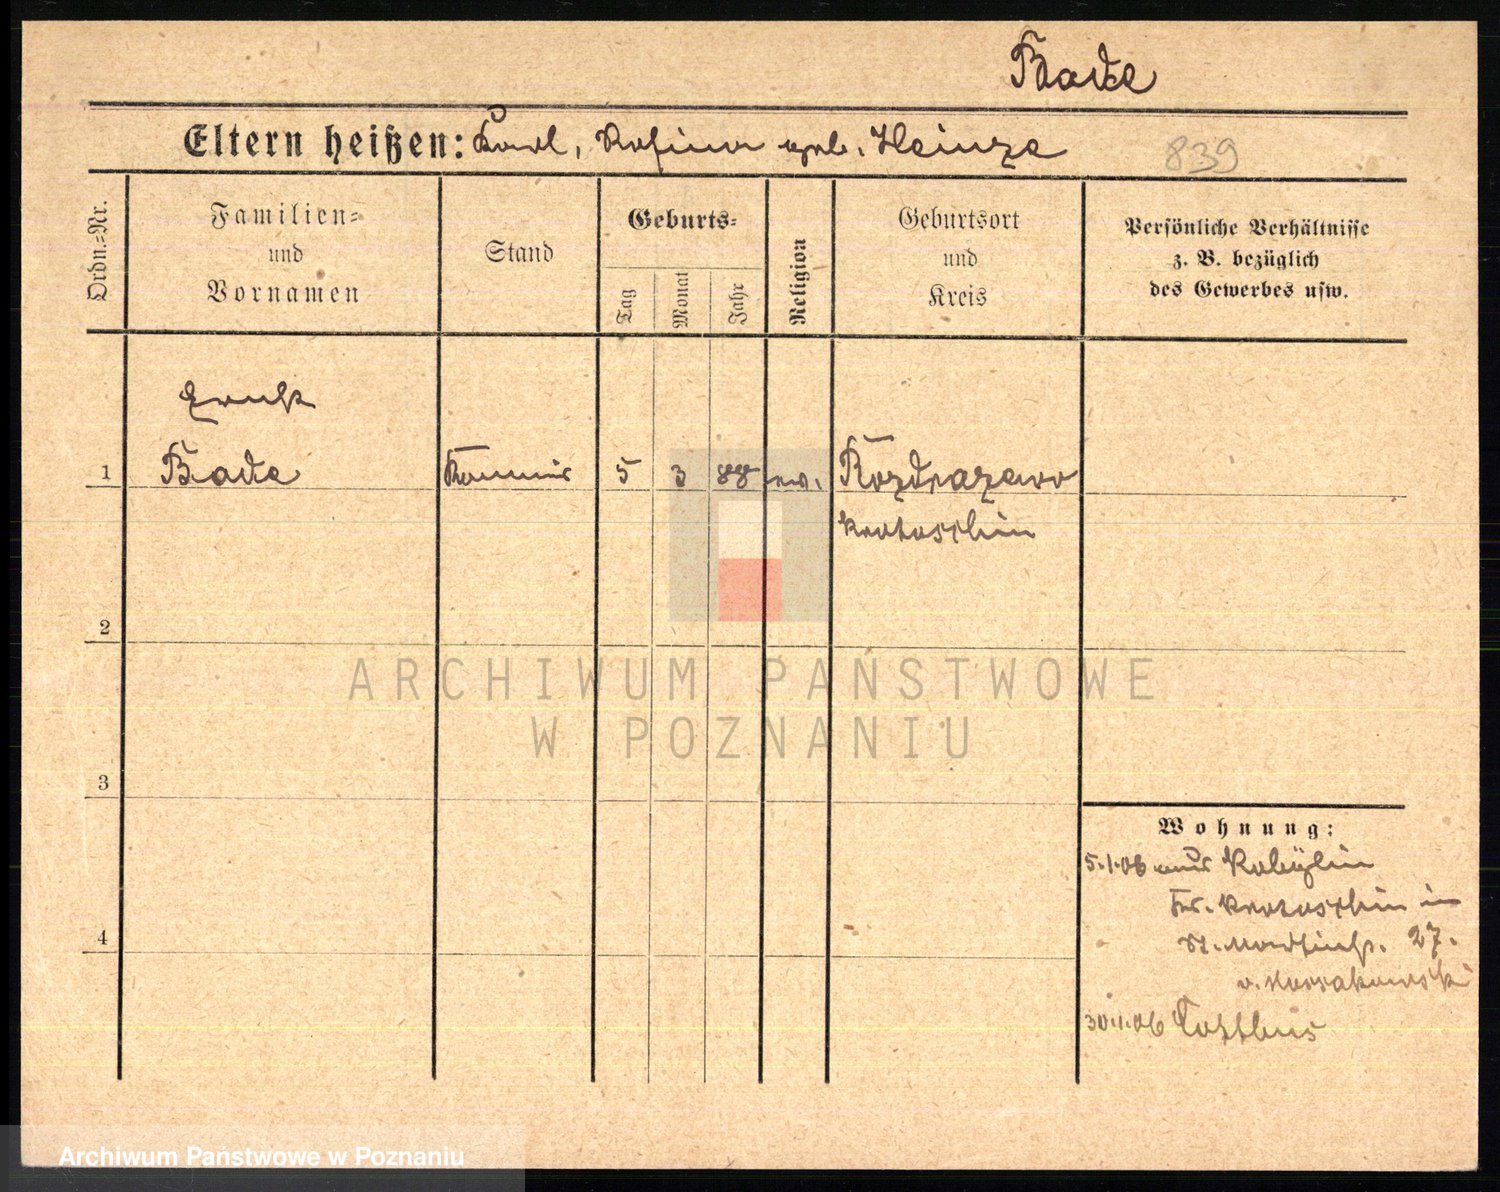 Bade
Eltern heißen: Karl, Rosina geb. Heinze
839
Ordn.=Nr.
Familien=
und
Vornamen
Stand
Geburts=
Tag
Monat
Jahr
Religion
Geburtsort
und
Kreis
Persönliche Verhältnisse
z. B. bezüglich
des Gewerbes usw.
Ernst
1 Bade Kommis 5 3 88 ev. Rozdrazewo
Krotoschin
2
ARCHIWUM PAŃSTWOWE
W POZNANIU
3
Wohnung:
5.1.06 aus Kobylin
Kr. Krotoschin in
St. Martinstr. 27.
4
30.1.06 Cottbus
Archiwum Państwowe w Poznaniu